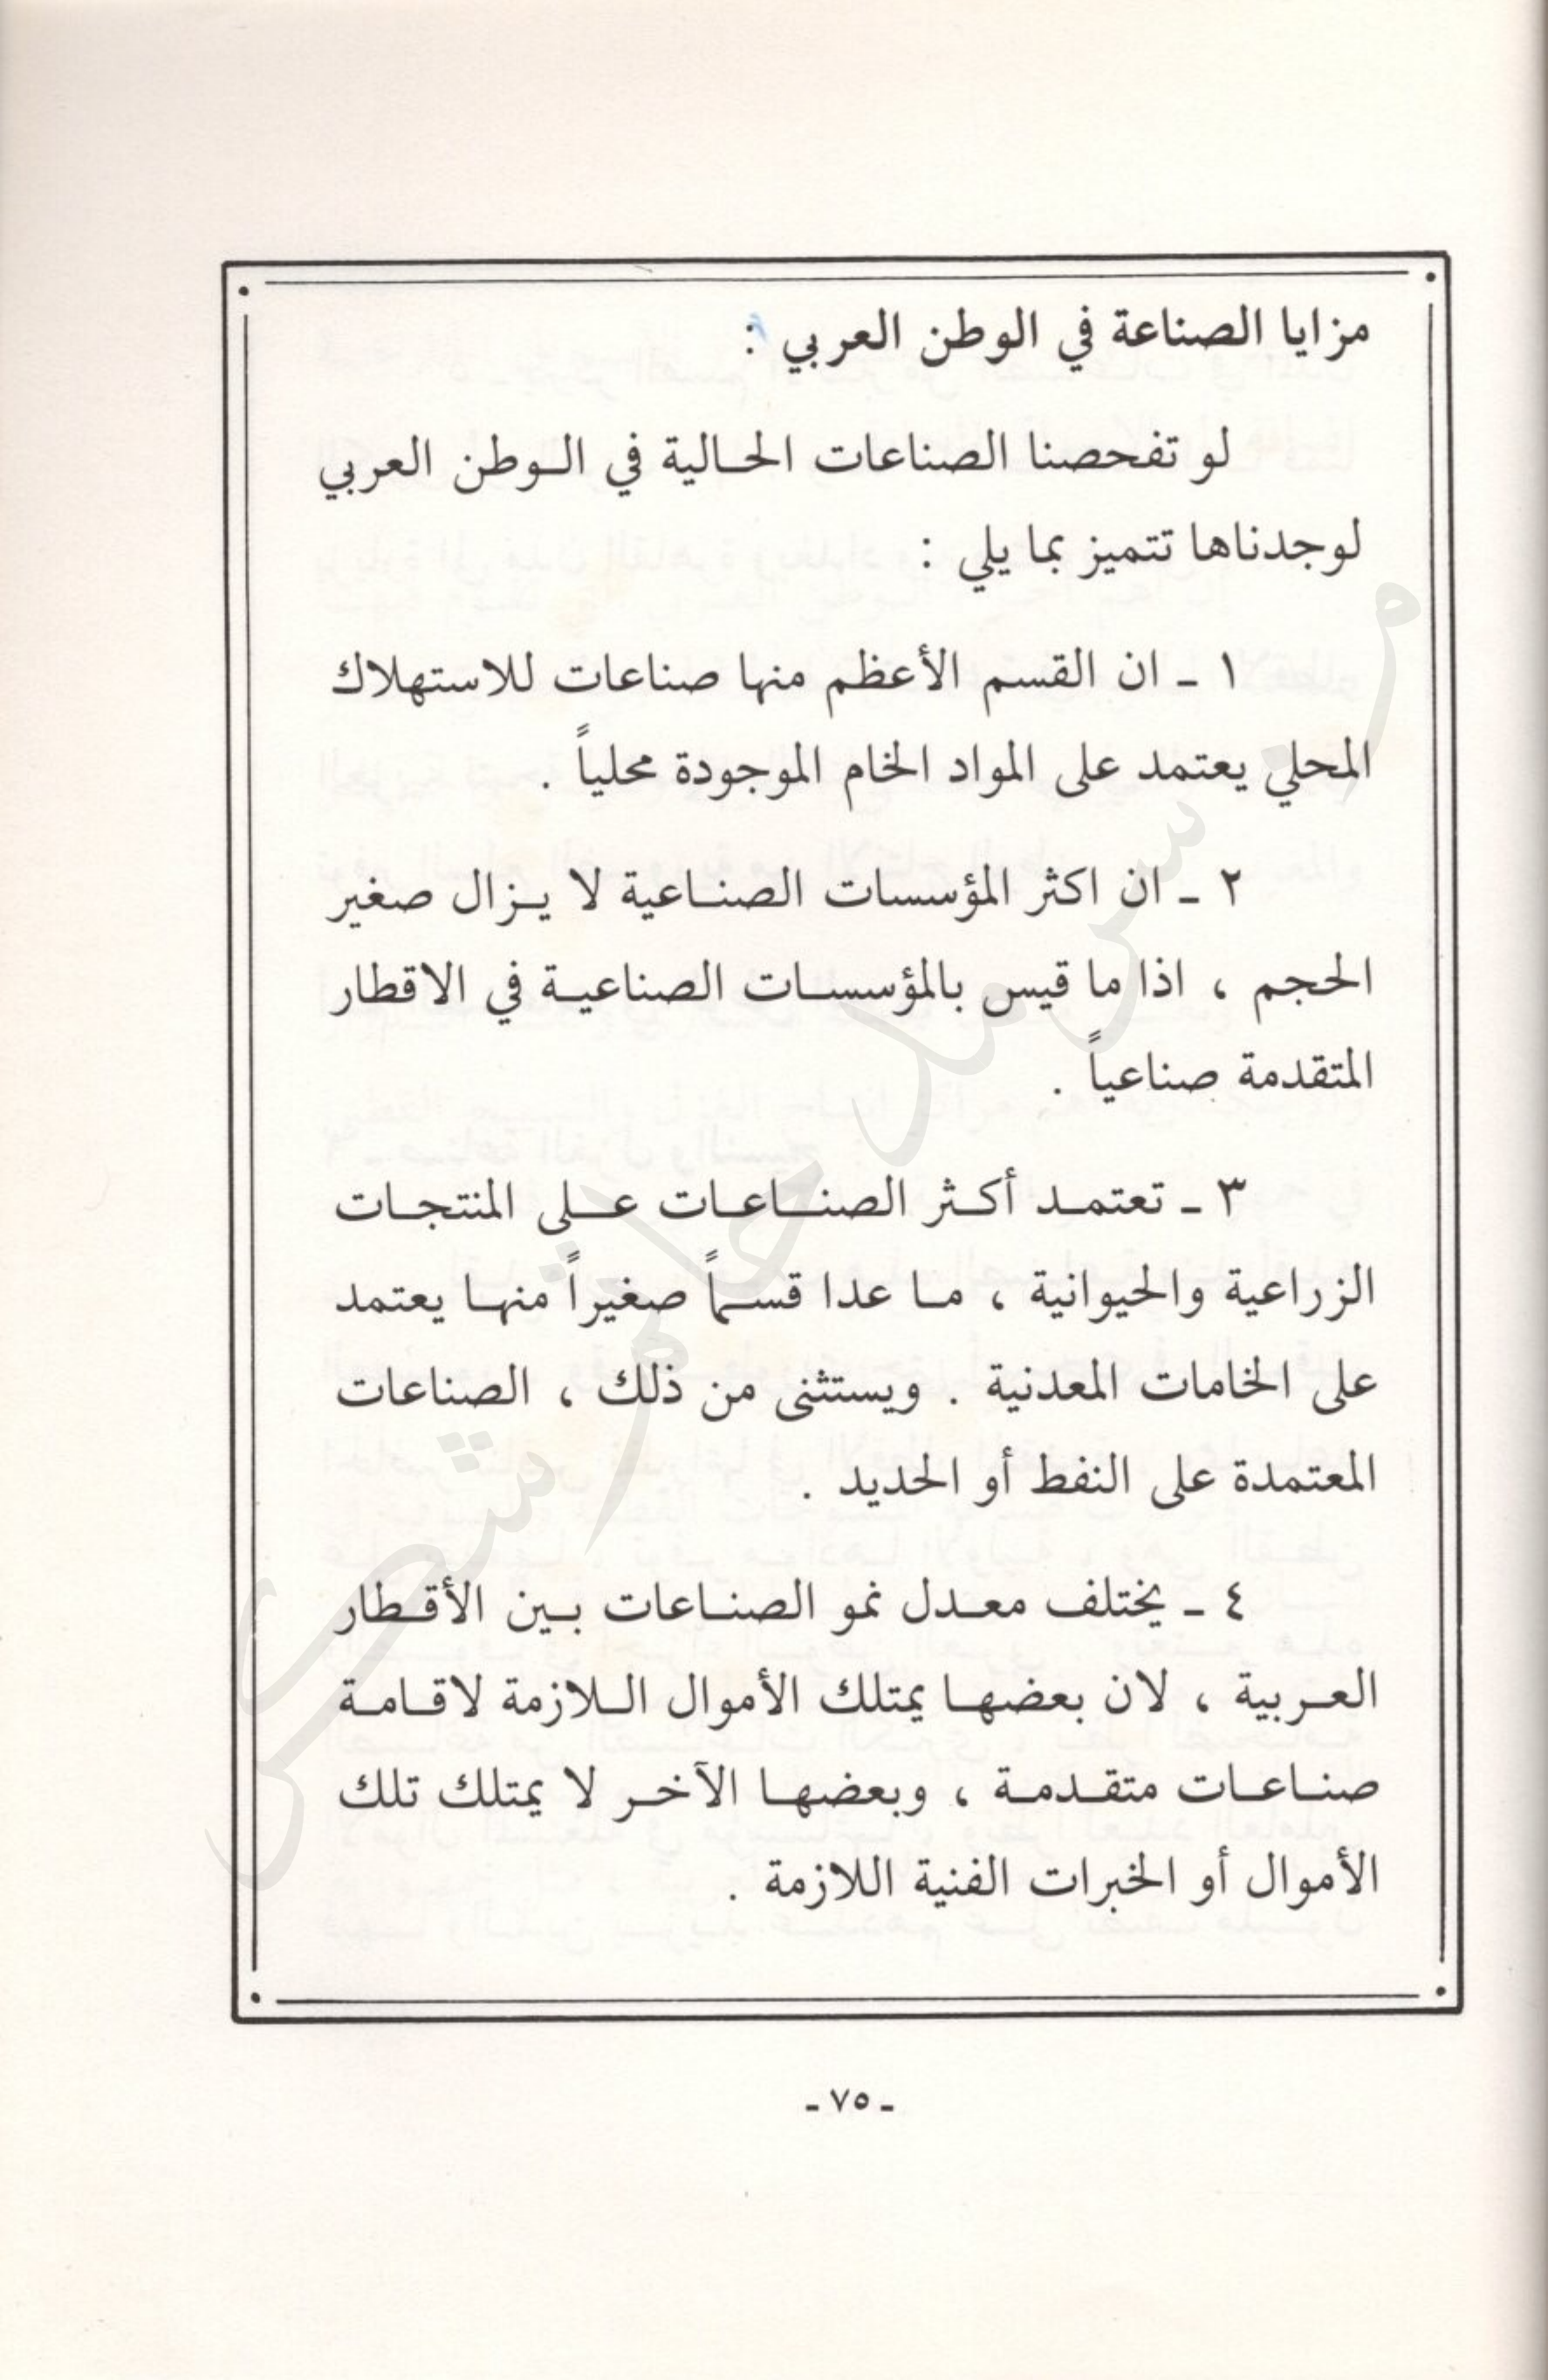 مزايا الصناعة في الوطن العربي :
لو تفحصنا الصناعات الحالية في الوطن العربي
لوجدناها تتميز بما يلي :
١ ـ ان القسم الأعظم منها صناعات للاستهلاك
المحلي يعتمد على المواد الخام الموجودة محلياً .
٢ ـ ان اكثر المؤسسات الصناعية لا يزال صغير
الحجم ، اذا ما قيس بالمؤسسات الصناعية في الاقطار
المتقدمة صناعياً .
٣ ـ تعتمد أكثر الصناعات على المنتجات
الزراعية والحيوانية ، ما عدا قسماً صغيراً منها يعتمد
على الخامات المعدنية . ويستثنى من ذلك ، الصناعات
المعتمدة على النفط أو الحديد .
٤ ـ يختلف معدل نمو الصناعات بين الأقطار
العربية ، لان بعضها يمتلك الأموال اللازمة لاقامة
صناعات متقدمة ، وبعضها الآخر لا يمتلك تلك
الأموال أو الخبرات الفنية اللازمة .
ـ ٧٥ ـ